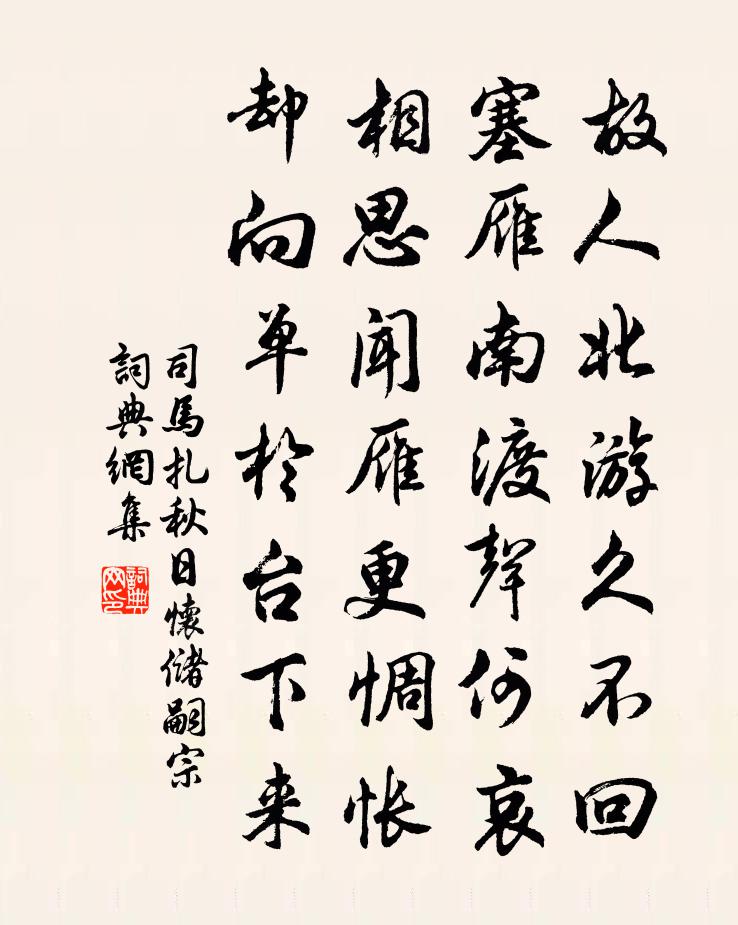 故人北游久不回
塞雁南渡聲何哀
相思聞雁更惆怅
却向单於台下来
司馬扎秋日懷儲嗣宗
詞典網集
詞典
网印